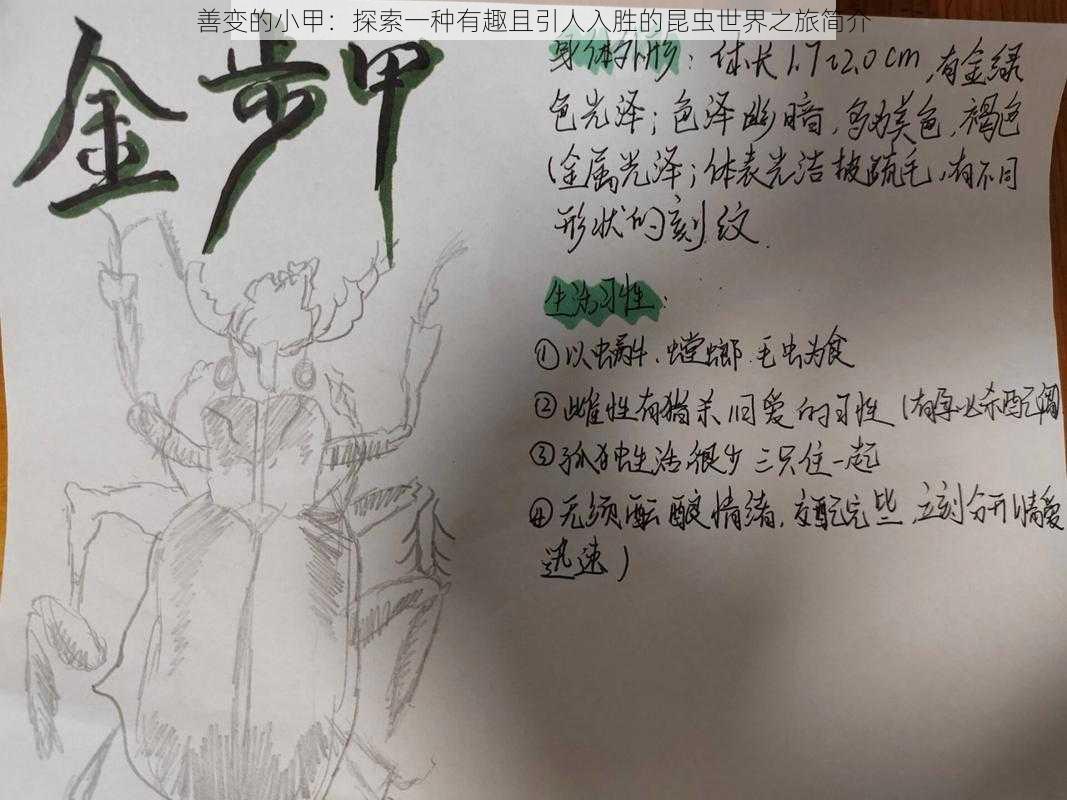 善变的小甲：探索一种有趣且引人入胜的昆虫世界之旅简介
金步甲
身体外形：体长1.7~2.0cm，有金绿
色光泽；色泽幽暗，多为黑色、褐色
（金属光泽；体表光洁披疏毛，有不同
形状的刻纹.
生活习性：
①以蜗牛、螳螂、毛虫为食
②雌性有猎杀旧爱的习性（有孕必杀配偶
③孤独生活很少三只住一起
④无须酝酿情绪，交配完毕，立刻分开情爱
迅速）